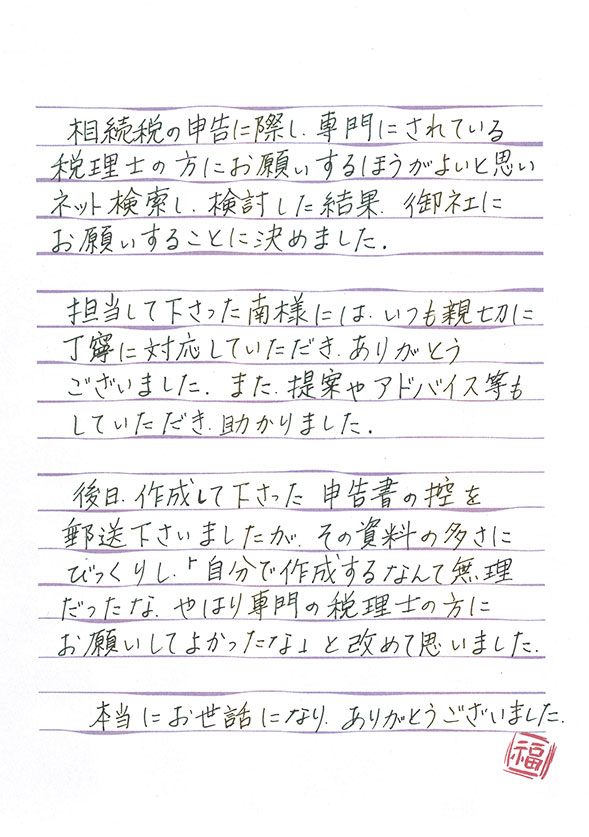 相続税の申告に際し、専門にされている
税理士の方にお願いするほうがよいと思い
ネット検索し、検討した結果、御社に
お願いすることに決めました。
担当して下さった南様には、いつも親切に
丁寧に対応していただき、ありがとう
ございました。また、提案やアドバイス等も
していただき、助かりました。
後日、作成して下さった 申告書の控を
郵送下さいましたが、その資料の多さに
びっくりし、「自分で作成するなんて無理
だったな、やはり専門の税理士の方に
お願いしてよかったな」と改めて思いました。
本当にお世話になり、ありがとうございました。
福